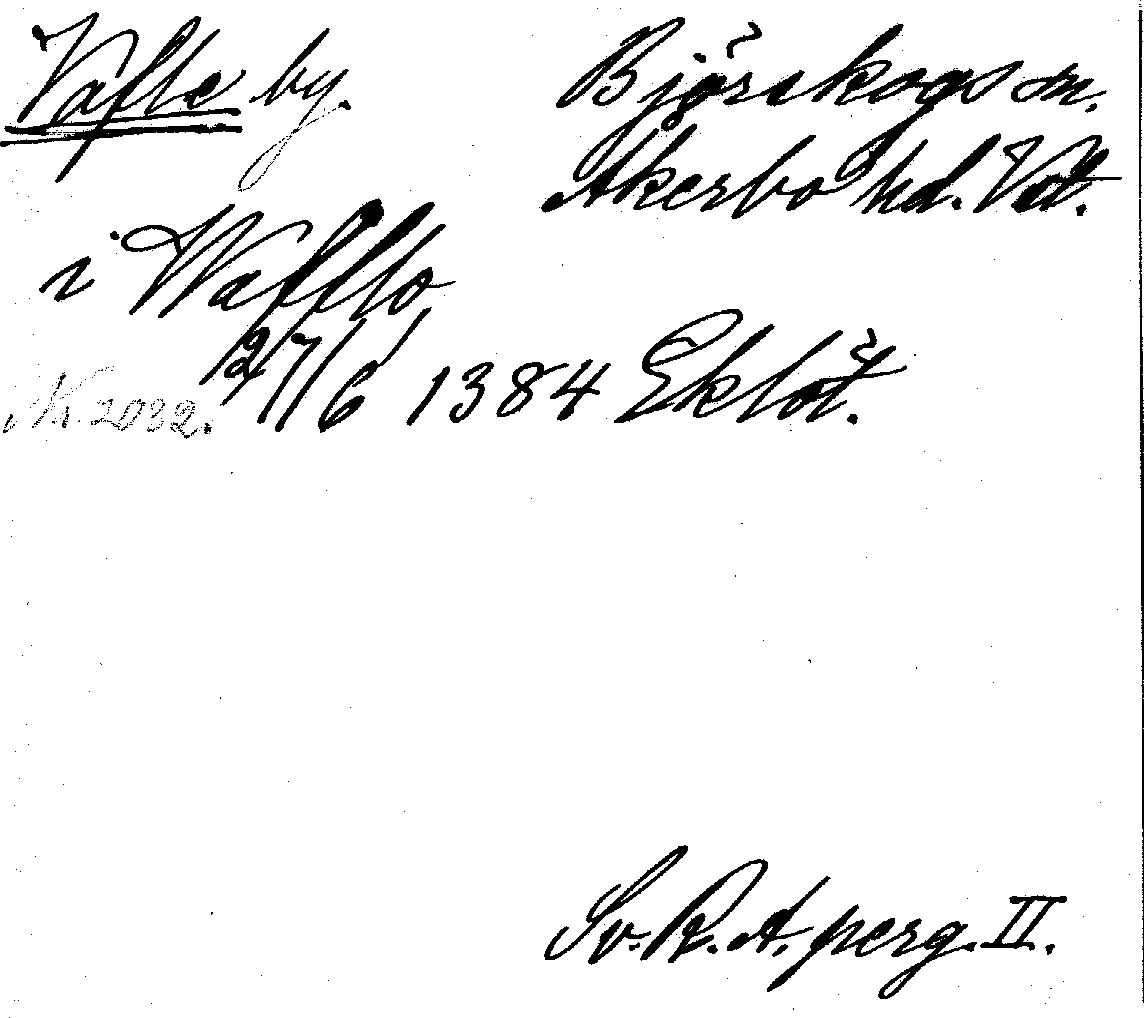 Vafle by.
Björskogs sn.
Åkerbo hd. Vstl.
i Wafflo
27/6 1384 Eklöt.
Nr. 2032.
Sv. R. A. perg. II.